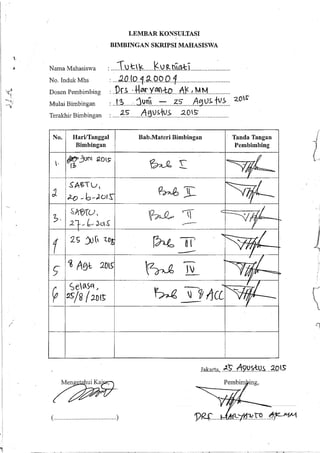 LEMBAR KONSULTASI
BIMBINGAN SKRIPSI MAHASISWA
Nama Mahasiswa : Tutik Kurniati
No. Induk Mhs :
Dosen Pembimbing : Drs. Haryanto AK, MM
Mulai Bimbingan : 13 Juni – 25 Agustus 2015
Terakhir Bimbingan : 25 Agustus 2015
No. Hari/Tanggal Bimbingan Bab.Materi Bimbingan Tanda Tangan Pembimbing
1. 13 Juni 2015 Bab I
2 SABTU, 20-6-2015 Bab II
3. SABTU, 27-6-2015 Bab II
4 25 Juli 2015 Bab III
5 8 Agt 2015 Bab IV
6 Selasa, 25/8/2015 Bab V & ACC
Jakarta, 25 Agustus 2015
Mengetahui Pembimbing,
(....................................) DRS HARYANTO AK MM